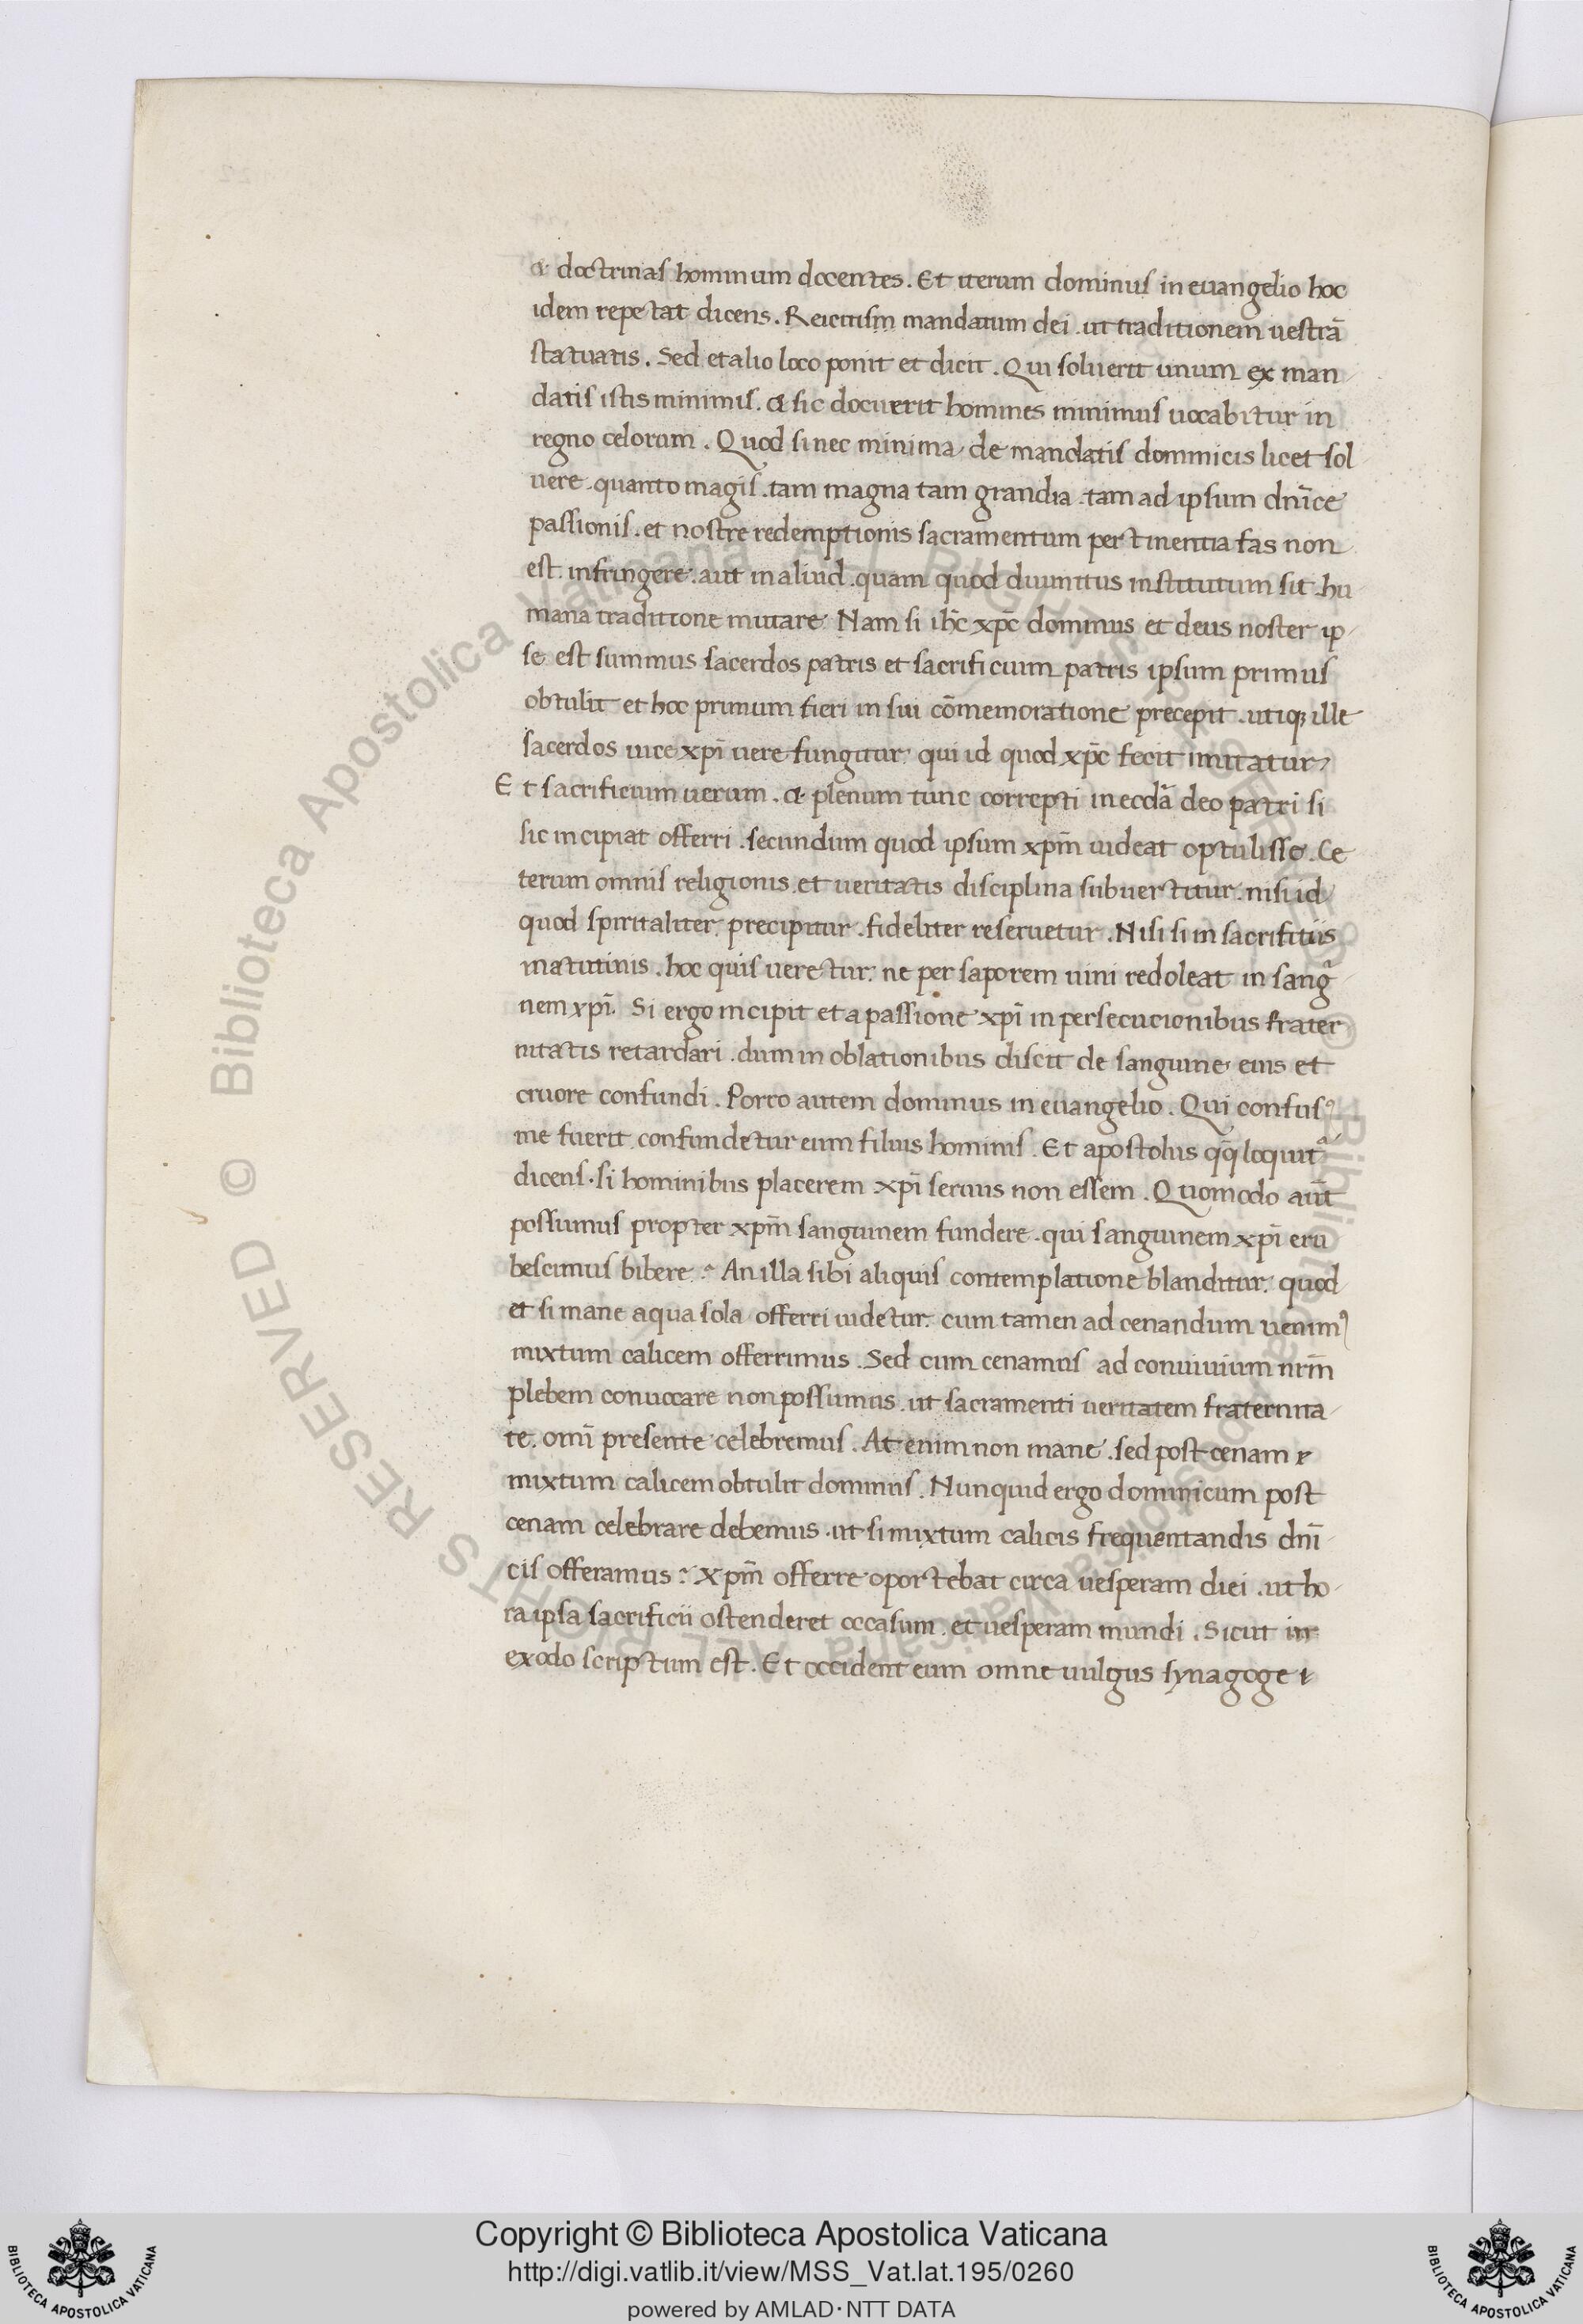 & doctrinas hominum docentes. Et iterum dominus in euangelio hoc
idem repetat dicens. Reicitism mandatum dei. ut traditionem uestrā
statuatis. Sed et alio loco ponit et dicit. Qui soluerit unum ex man-
datis istis minimis. & sic docuerit homines minimus uocabitur in
regno celorum. Quod si nec minima de mandatis dominicis licet sol-
uere. quanto magis. tam magna tam grandia. tam ad ipsum dn̄ice
passionis. et nostre redemptionis sacramentum pertinentia fas non
est. infringere. aut in aliud. quam quod diuinitus institutum sit. hu-
mana traditione mutare. Nam si ih̄c xp̄c dominus et deus noster ip-
se est summus sacerdos patris et sacrificium patris ipsum primus
obtulit et hoc primum fieri in sui cōmemoratione precepit. utiqꝫ ille
sacerdos uice xpī uere fungitur. qui id quod xp̄c fecit imitatur,
Et sacrificium uerum. & plenum tunc correpti in eccl̄a deo patri si
sic incipiat offerri. secundum quod ipsum xpm̄ uideat optulisse. Ce
terum omnis religionis. et ueritatis disciplina subuertitur. nisi id
quod spiritaliter precipitur. fideliter reseruetur. Nisi si in sacrifitiis
matutinis. hoc quis ueretur. ne per saporem uini redoleat in sangⁱ-
nem xpī. Si ergo incipit et a passione xpī in persecucionibus frater
nitatis retardari. dum in oblationibus discit de sanguine eius et
cruore confundi. Porro autem dominus in euangelio. Qui confusꝰ
me fuerit confundetur eum filius hominis. Et apostolus qq̄ loquit᷑
dicens. si hominibus placerem xpī seruus non essem. Quomodo aūt
possumus propter xpm̄ sanguinem fundere. qui sanguinem xpī eru
bescimus bibere? An illa sibi aliquis contemplatione blanditur. quod
et si mane aqua sola offerri uidetur. cum tamen ad cenandum uenimꝰ
mixtum calicem offerrimus. Sed cum cenamus ad conuiuium nrm̄
plebem conuocare non possumus. ut sacramenti ueritatem fraternita-
te. omī presente celebremus. At enim non mane. sed post cenam
mixtum calicem obtulit dominus. Nunquid ergo dominicum post
cenam celebrare debemus. ut si mixtum calicis frequentandis dnī
cis offeramus? Xpm̄ offerre oportebat circa uesperam diei. ut ho-
ra ipsa sacrificii ostenderet occasum. et uesperam mundi. Sicut in
exodo scriptum est. Et occident eum omne uulgus synagoge
Copyright © Biblioteca Apostolica Vaticana
http://digi.vatlib.it/view/MSS_Vat.lat.195/0260
powered by AMLAD·NTT DATA
BIBLIOTECA APOSTOLICA VATICANA
BIBLIOTECA APOSTOLICA VATICANA
© Biblioteca Apostolica Vaticana ALL RIGHTS RESERVED
© Biblioteca Apostolica Vaticana ALL RIGHTS RESERVED